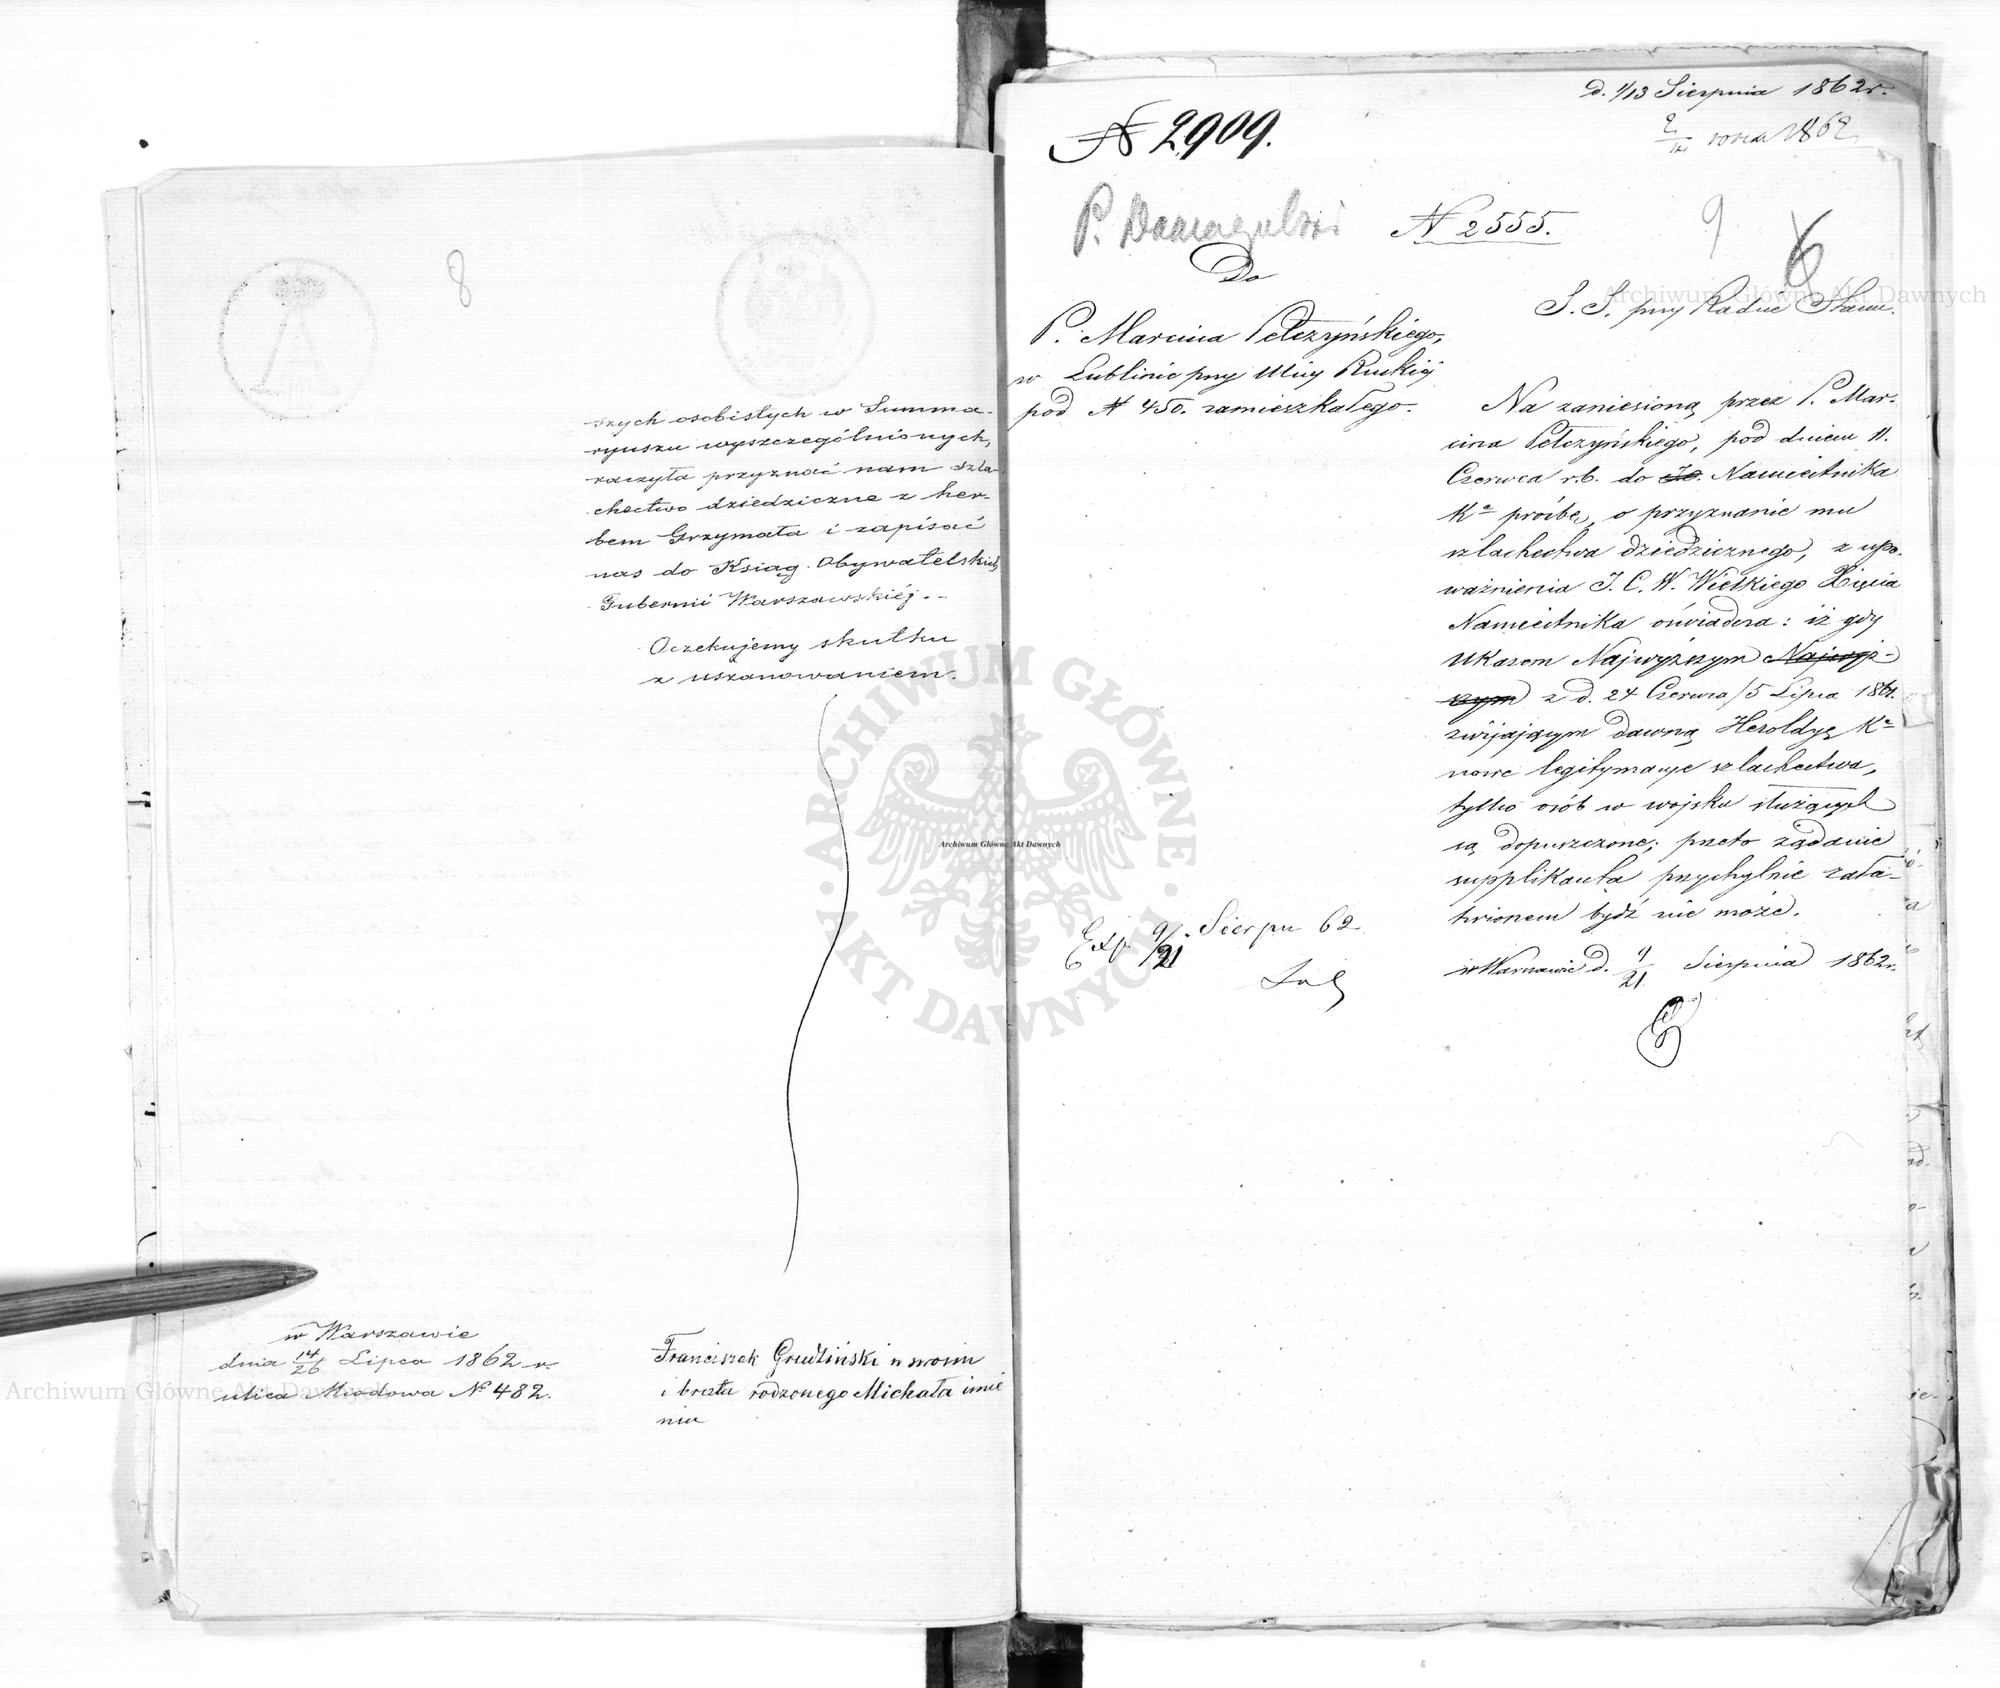 8
szych osobistych w Summa-
ryuszu wyszczególnionych,
raczyła przyznać nam szla-
chectwo dziedziczne z her-
bem Grzymała i zapisać
nas do Ksiąg Obywatelskich
Gubernii Warszawskiéj.-
Oczekujemy skutku
z uszanowaniem.
w Warszawie
dnia 14/26 Lipca 1862 r.
ulica Miodowa № 482.
Franciszek Grudziński w swoim
i brata rodzonego Michała imie
niu
d. 1/13 Sierpnia 1862 r.
№ 2909.
1862
P.
№ 2555.
9
6
Do
P. Marcina Pełczyńskiego,
w Lublinie przy Ulicy Ruskiéj
pod № 450. zamieszkałego.
S. S. przy Radzie Stanu.
Na zaniesioną przez P. Mar-
cina Pełczyńskiego, pod dniem 11.
Czerwca r.b. do Namiestnika
Kª prośbę, o przyznanie mu
szlachectwa dziedzicznego, z upo-
ważnienia J. C. W. Wielkiego Xięcia
Namiestnika oświadcza: iż gdy
Ukazem Najwyższym Najwyż-
szym z d. 24 Czerwca/5 Lipca 1861.
zwijającym dawną Heroldyę Kª
nowe legitymacye szlachectwa,
tylko osób w wojsku służących
są dopuszczone; przeto żądanie
supplikanta przychylnie zała-
twionem bydź nie może.
w Warszawie d. 9/21 Sierpnia 1862 r.
Exp. 9/21 Sierpn 62
Archiwum Główne Akt Dawnych
Archiwum Główne Akt Dawnych
Archiwum Główne Akt Dawnych
ARCHIWUM GŁÓWNE AKT DAWNYCH